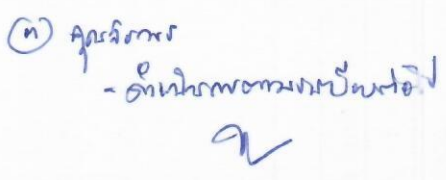 (๓) คุณจิราพร
- ดำเนินการตามระเบียบต่อไป